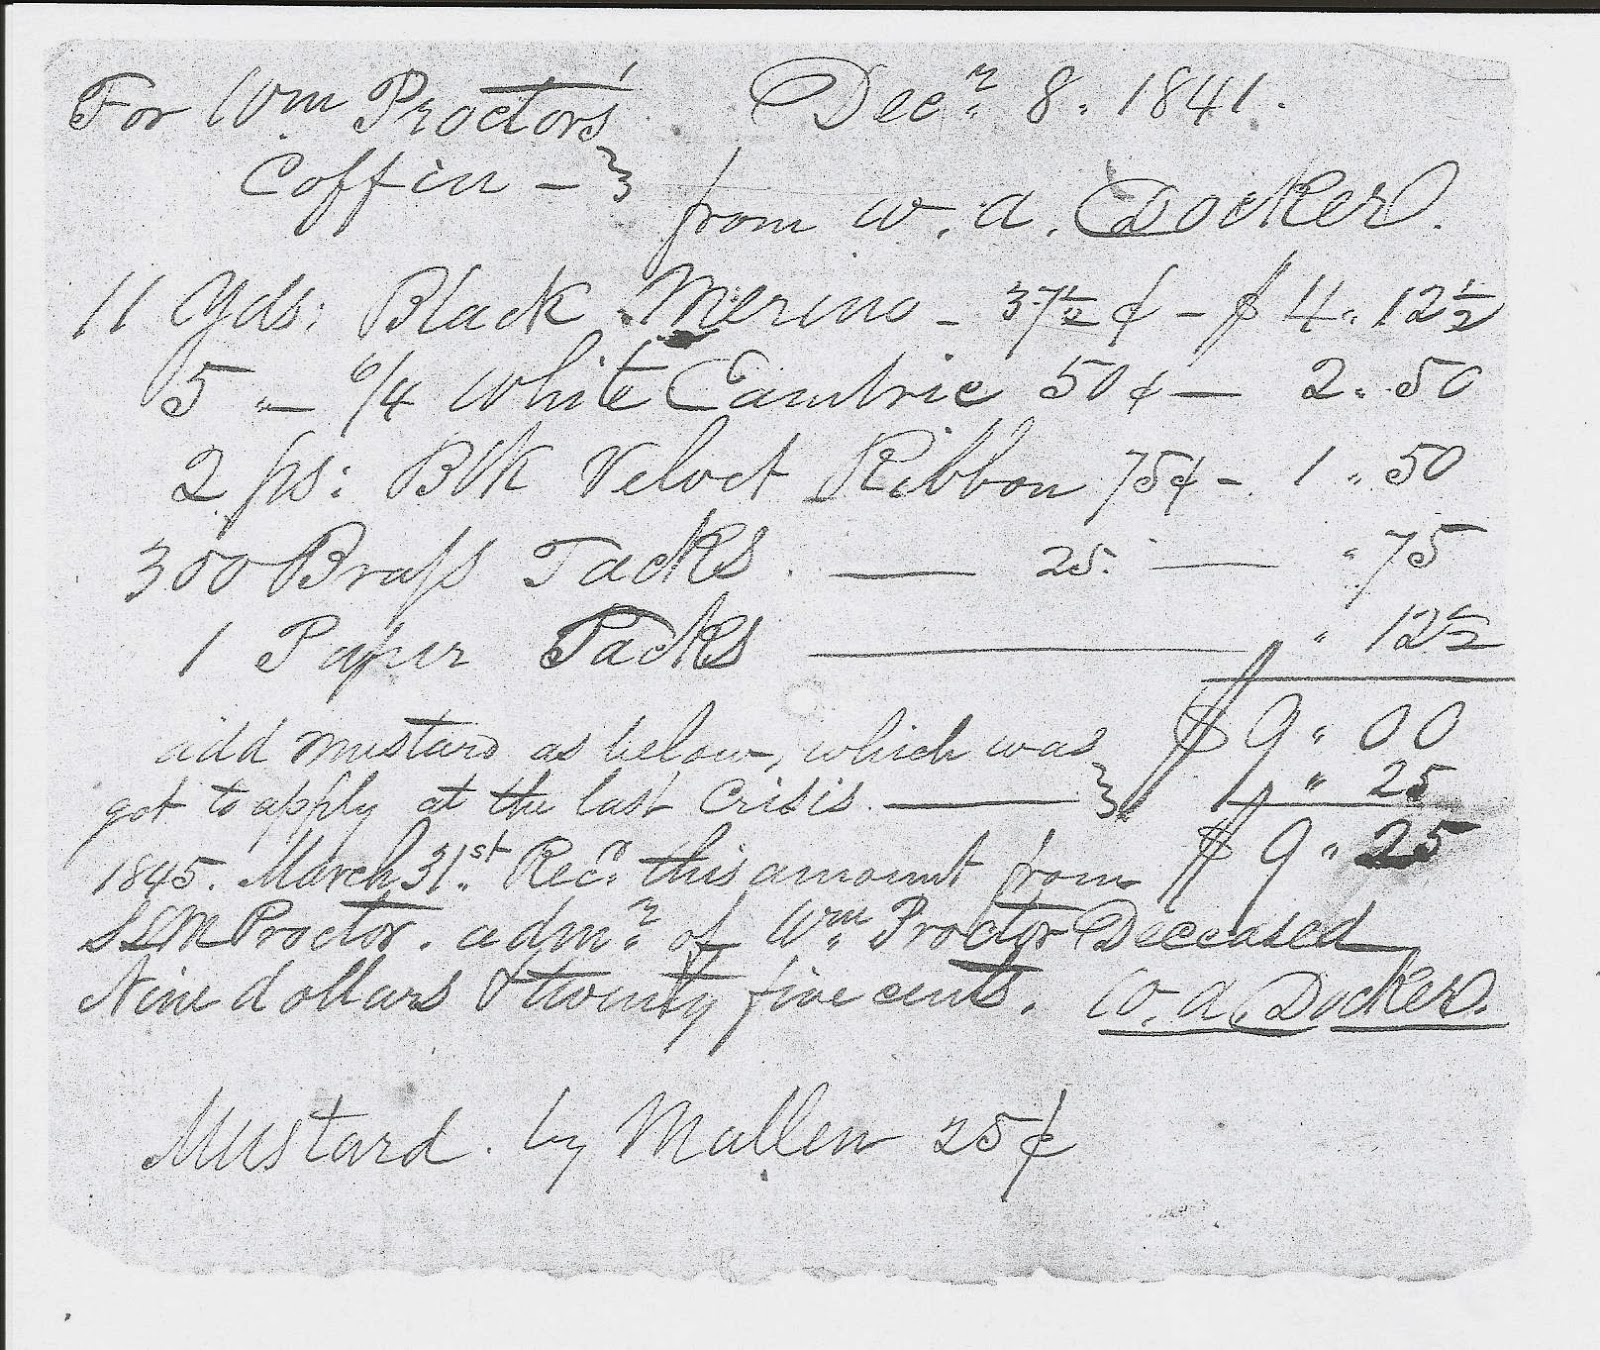 For Wm Proctor's Decr 8. 1841.
Coffin -
from W. A. Docker.
11 Yds: Black Merino - 37½ ¢ - $ 4 " 12½
5 " — 6/4 White Cambric 50¢ — 2 " 50
2 ps: Blk Velvet Ribbon 75¢ - 1 " 50
300 Brass Tacks. — 25. — " 75
1 Paper Tacks — " 12½
$ 9 " 00
add mustard as below, which was
got to apply at the last Crisis. — " 25
$ 9 " 25
1845. March 31st. Recd. this amount from
Proctor. admr. of Wm Proctor Deceased
Nine dollars & twenty five cents. W. A. Docker.
Mustard. by Mullen 25¢